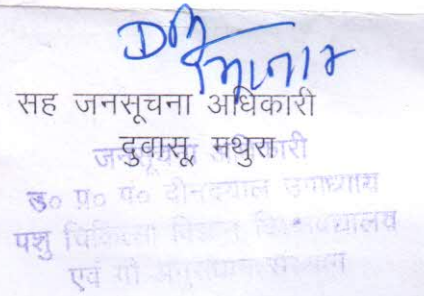 सह जनसूचना अधिकारी
दुवासू, मथुरा
जनसूचना अधिकारी
उ० प्र० पं० दीनदयाल उपाध्याय
पशु चिकित्सा विज्ञान विश्वविद्यालय
एवं गौ अनुसंधान संस्थान